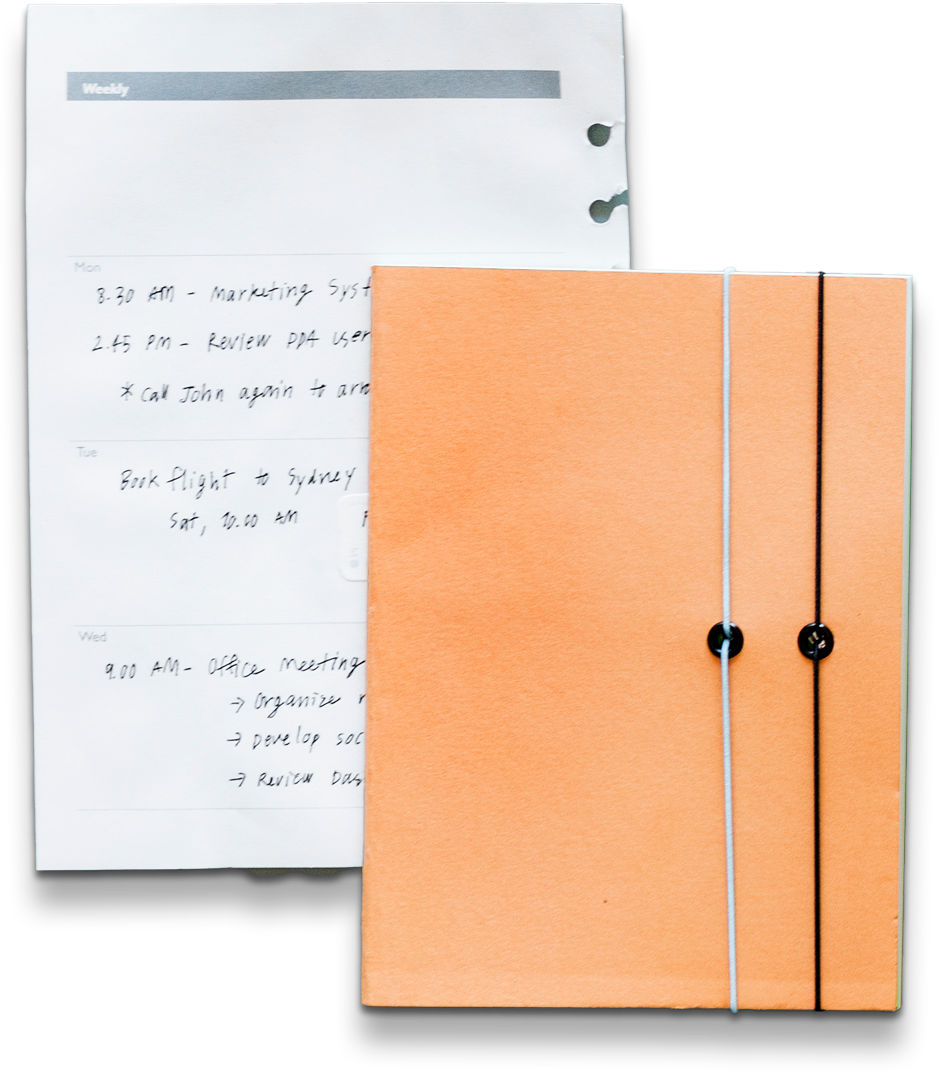 Weekly
Mon
8.30 AM - Marketing Syst
2.45 PM - Review PDA user
* Call John again to arra
Tue
Book flight to Sydney
Sat, 10.00 AM
Wed
9.00 AM - Office Meeting
→ Organize r
→ Develop soc
→ Review Das